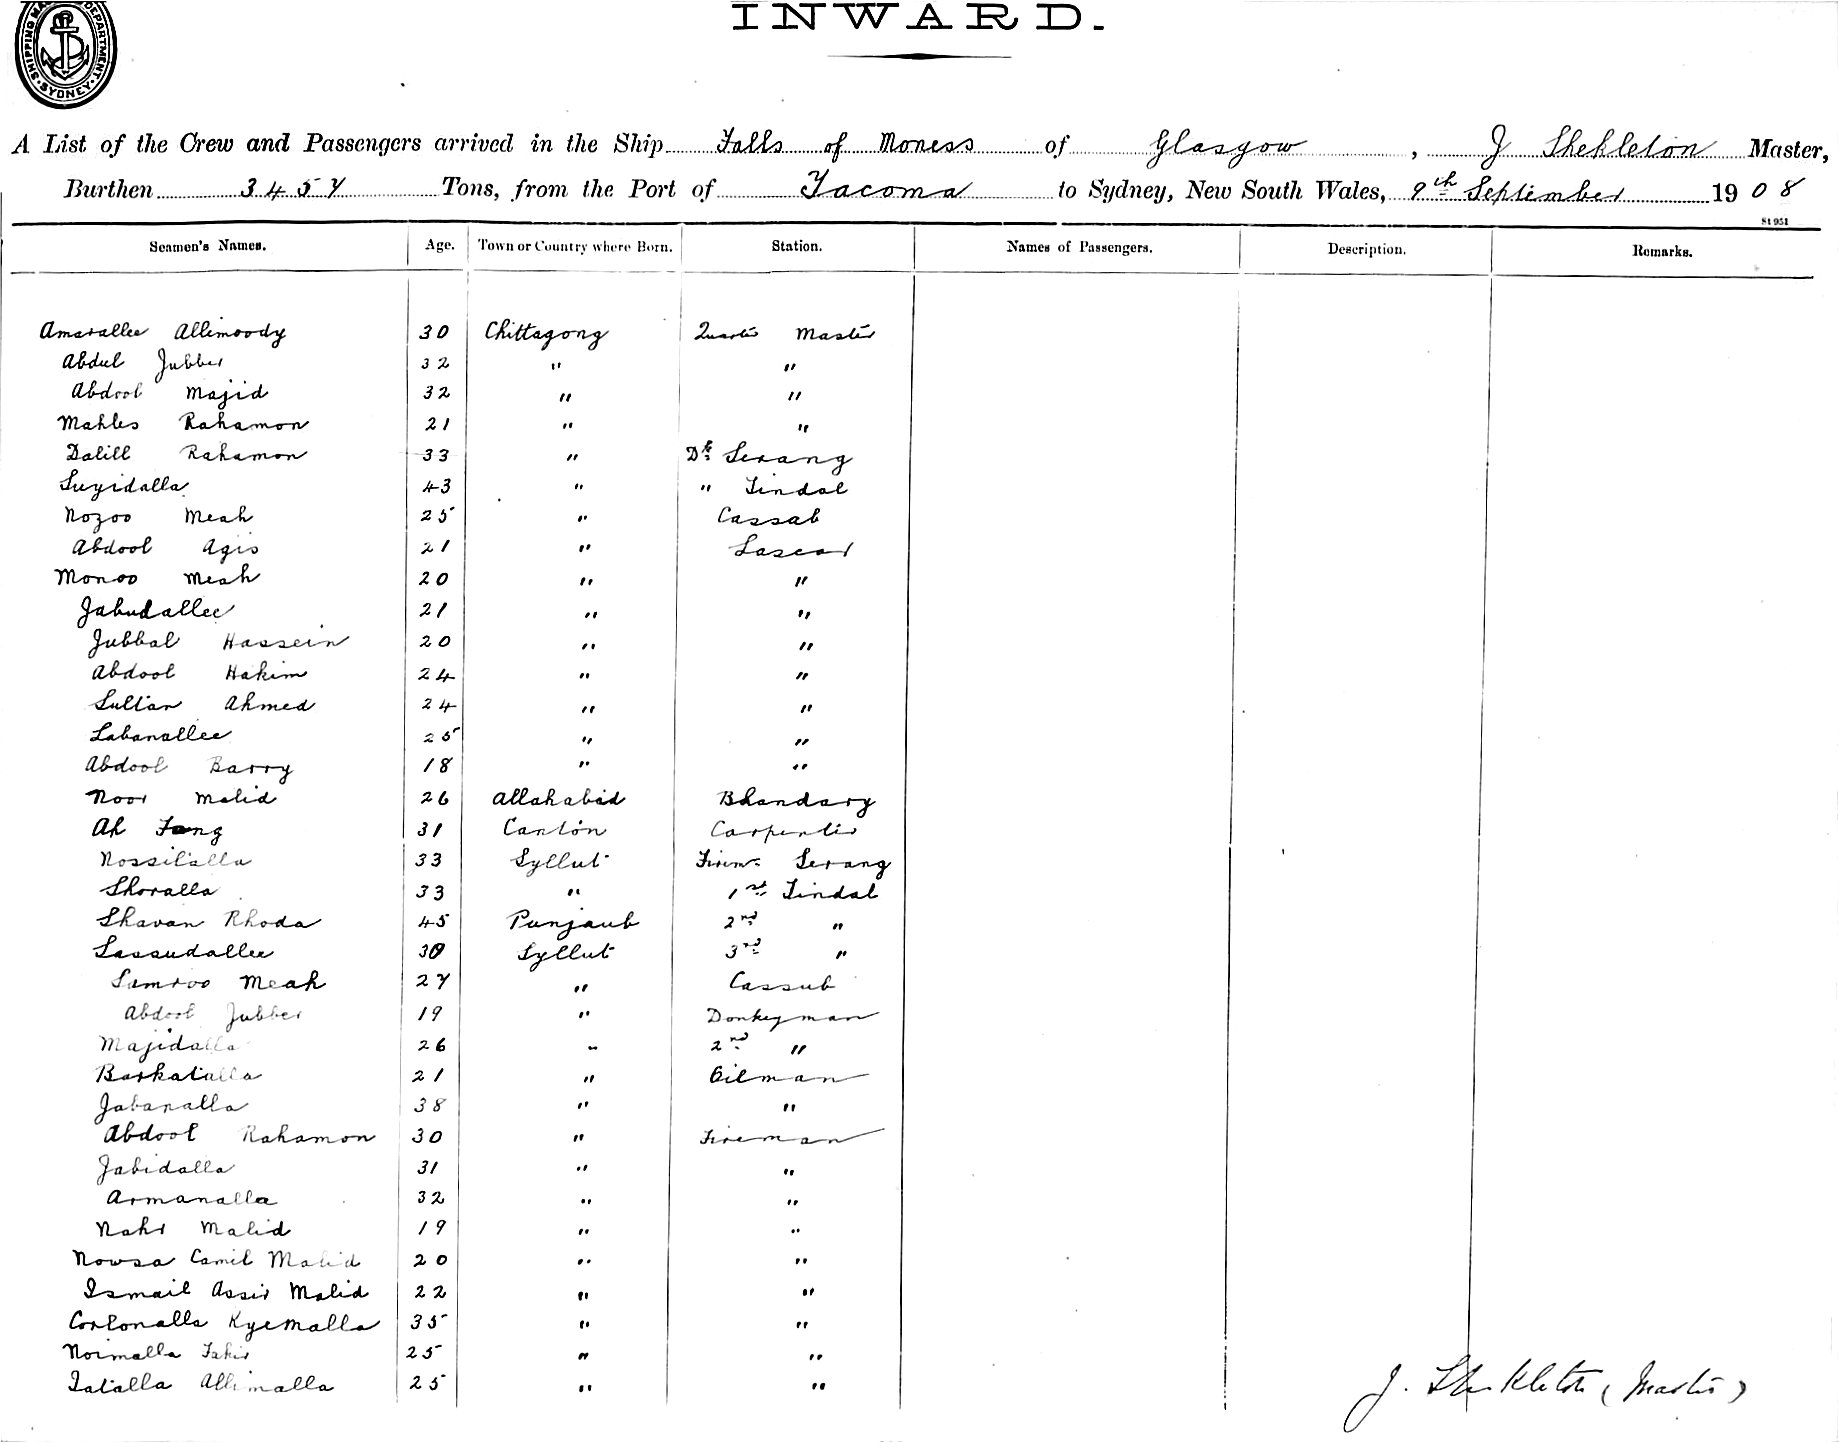 SHIPPING MA DEPARTMENT. SYDNEY
INWARD.
A List of the Crew and Passengers arrived in the Ship Falls of Moness of Glasgow, J Shekleton Master,
Burthen 3457 Tons, from the Port of Tacoma to Sydney, New South Wales, 9th September 1908
81951
Seamen's Names. Age. Town or Country where Born. Station. Names of Passengers. Description. Remarks.
Amarallee Allimoody 30 Chittagong Quarter Master
Abdul Jubber 32 " "
Abdool Majid 32 " "
Mahles Rahamon 21 " "
Dalill Rahamon 33 " Dk Serang
Suyidalla 43 " " Tindal
Nozoo Meah 25 " Cassab
Abdool Agis 21 " Lascar
Monoo Meah 20 " "
Jabudallee 21 " "
Jubbal Hassein 20 " "
Abdool Hakim 24 " "
Sultan Ahmed 24 " "
Labanallee 25 " "
Abdool Barry 18 " "
Noor Malid 26 Allahabad Bhandary
Ah Fong 31 Canton Carpenter
Nossilalla 33 Syllut Firemns Serang
Shoralla 33 " 1st Tindal
Shavan Rhoda 45 Punjaub 2nd "
Sassudallee 30 Syllut 3rd "
Samroo Meah 27 " Cassub
Abdool Jubber 19 " Donkeyman
Majidalla 26 " 2nd "
Barkatalla 21 " Oilman
Jabanalla 38 " "
Abdool Rahamon 30 " Fireman
Jabidalla 31 " "
Armanalla 32 " "
Nahr Malid 19 " "
Nowsa Camil Malid 20 " "
Ismail Assir Malid 22 " "
Corbonalla Kyemalla 35 " "
Noimalla Fakir 25 " "
Tatalla Allimalla 25 " "
J. Shekleton (Master)